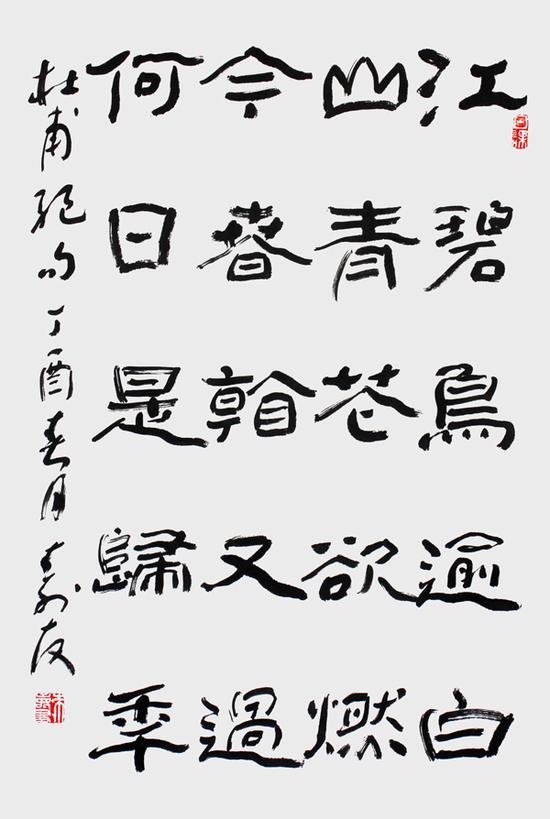 江碧鳥逾白
山青花欲燃
今春看又過
何日是歸年
杜甫絕句丁酉春月壽友